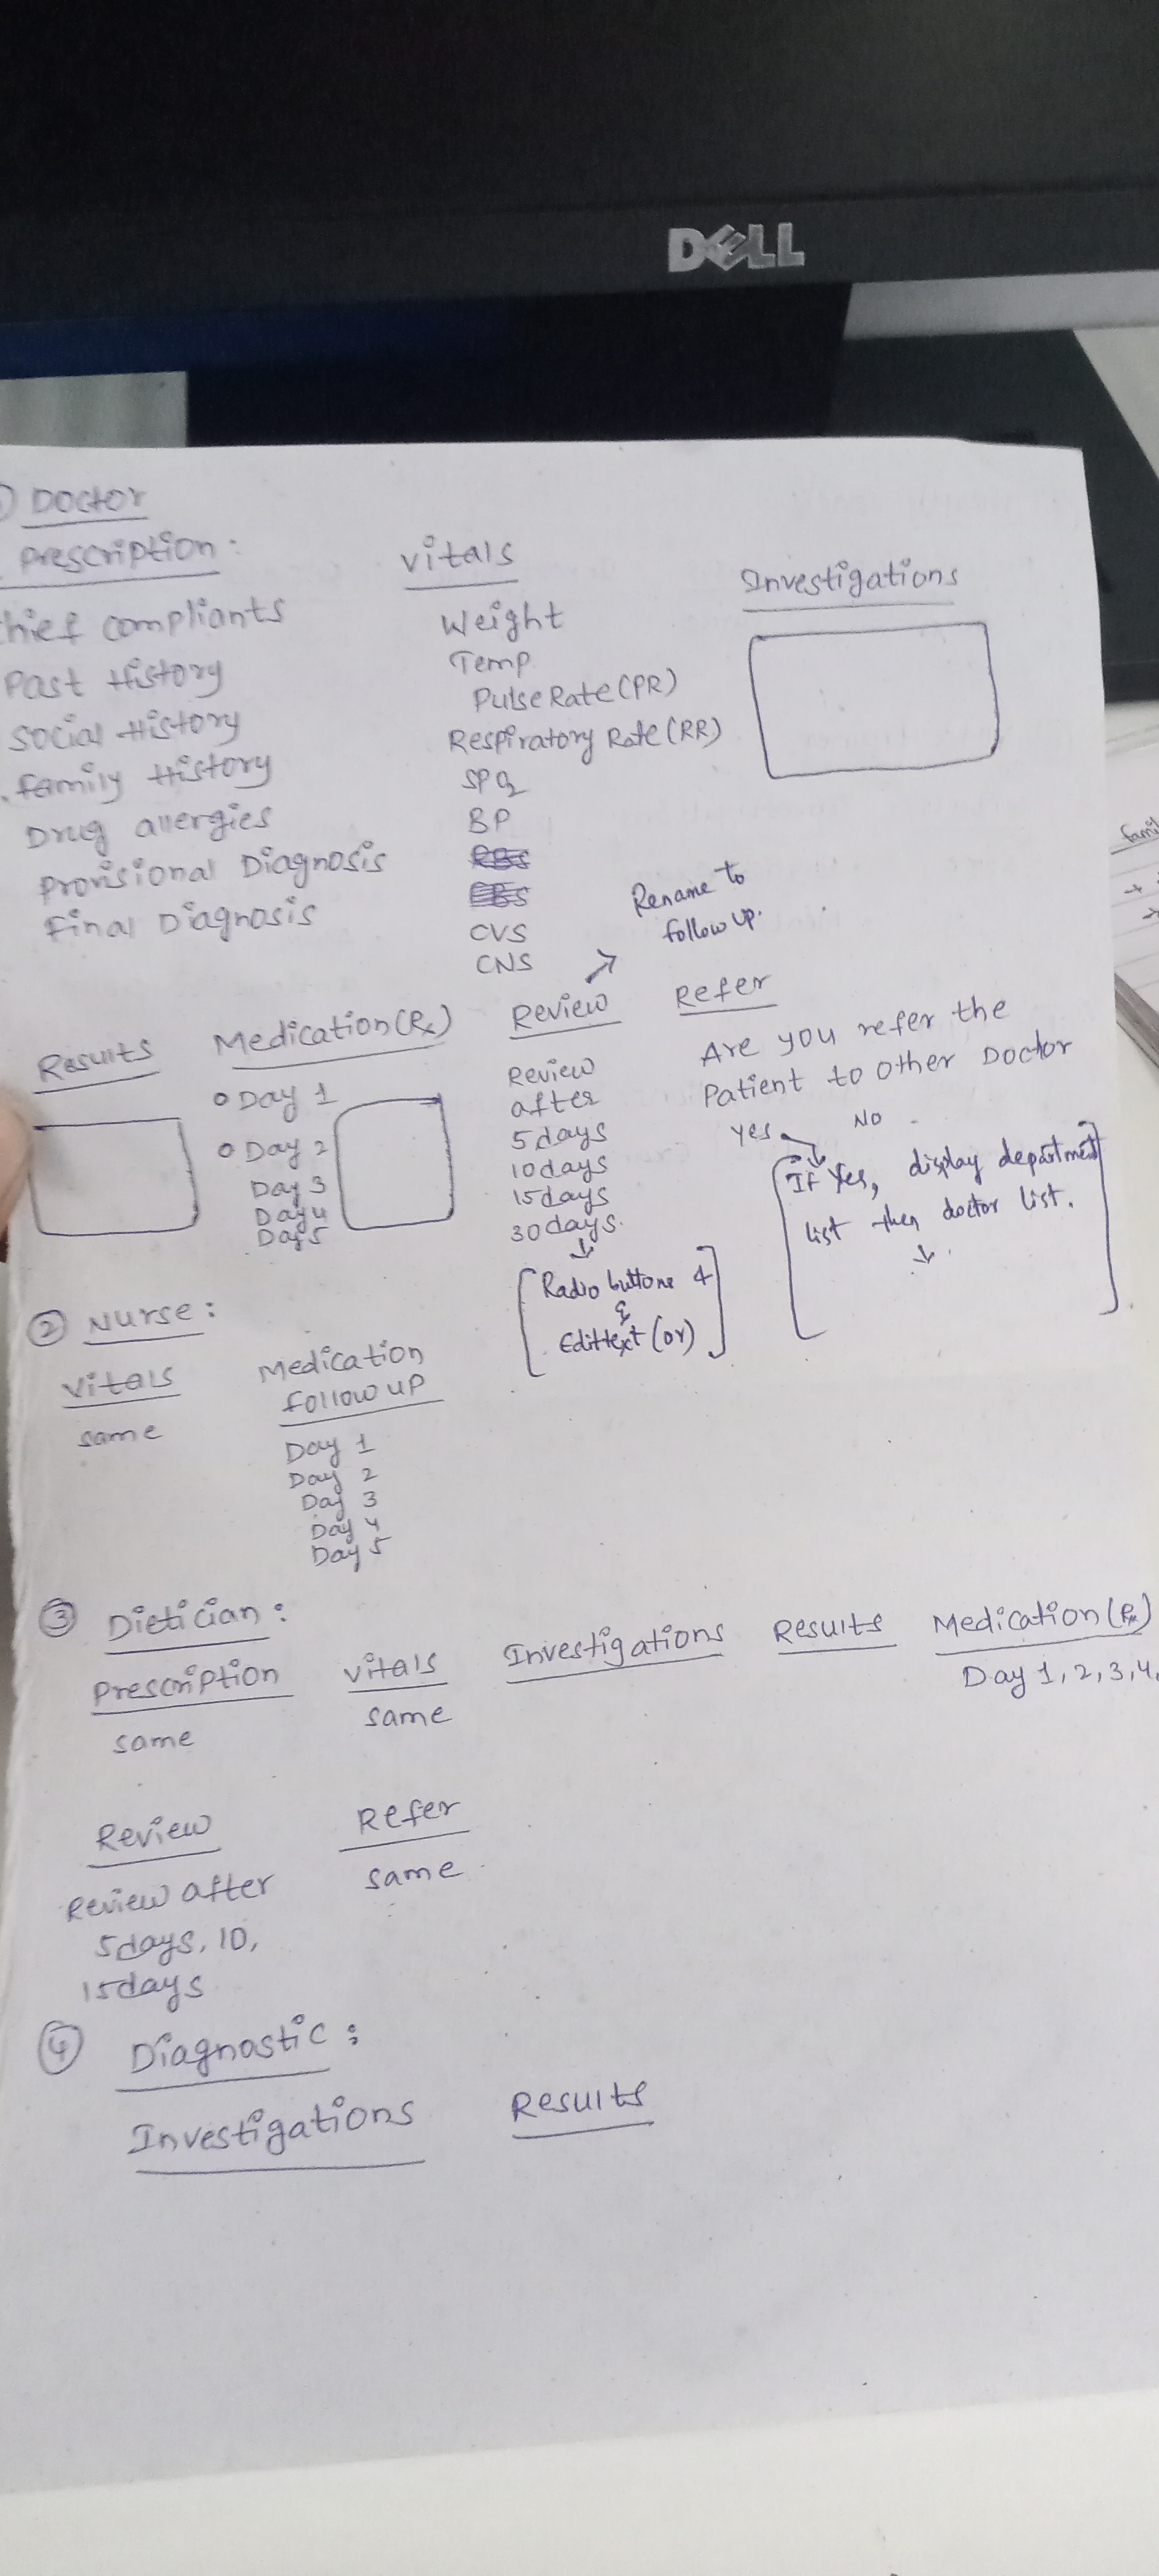 DELL
Doctor
Prescription:
hief compliants
Past History
Social History
family History
Drug allergies
Provisional Diagnosis
Final Diagnosis
Vitals
Weight
Temp
Pulse Rate (PR)
Respiratory Rate (RR)
SPO2
BP
CVS
CNS
Investigations
Results
Medication (Rx)
Day 1
Day 2
Day 3
Day 4
Day 5
Rename to
follow up.
Review
Review
after
5 days
10 days
15 days
30 days.
[Radio buttons 4
&
Edittext (or)]
Refer
Are you refer the
Patient to other Doctor
Yes NO
[If Yes, display department
list then doctor list.
② Nurse:
Vitals
same
Medication
follow up
Day 1
Day 2
Day 3
Day 4
Day 5
③ Dietician:
Prescription
same
Vitals
same
Investigations
Results
Medication (Rx)
Day 1, 2, 3, 4,
Review
Review after
5 days, 10,
15 days
Refer
same
④ Diagnostic:
Investigations Results